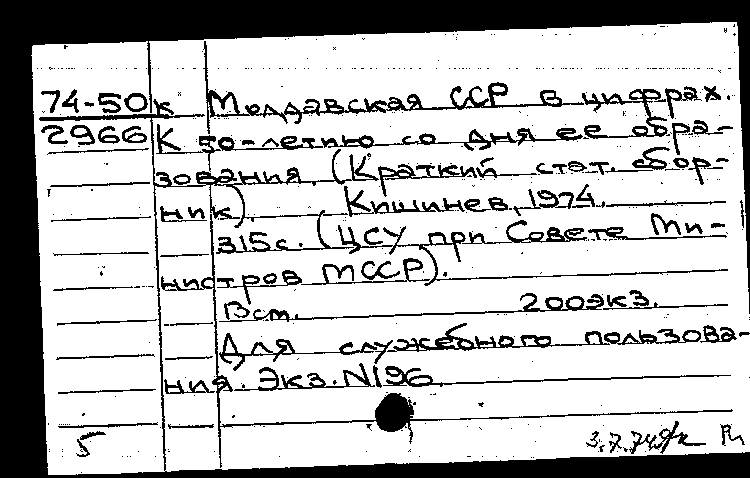 74-50к Молдавская ССР в цифрах.
2966 К 50-летию со дня ее обра-
зования. (Краткий стат. сбор-
ник). Кишинев, 1974.
315с. (ЦСУ при Совете Ми-
нистров МССР).
Вст. 200экз.
Для служебного пользова-
ния. Экз. N196.
5 3.7.74